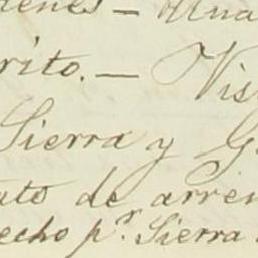 denes – Una
rito. – Vis
Sierra y G
ato de arren
echo p.r Sierra